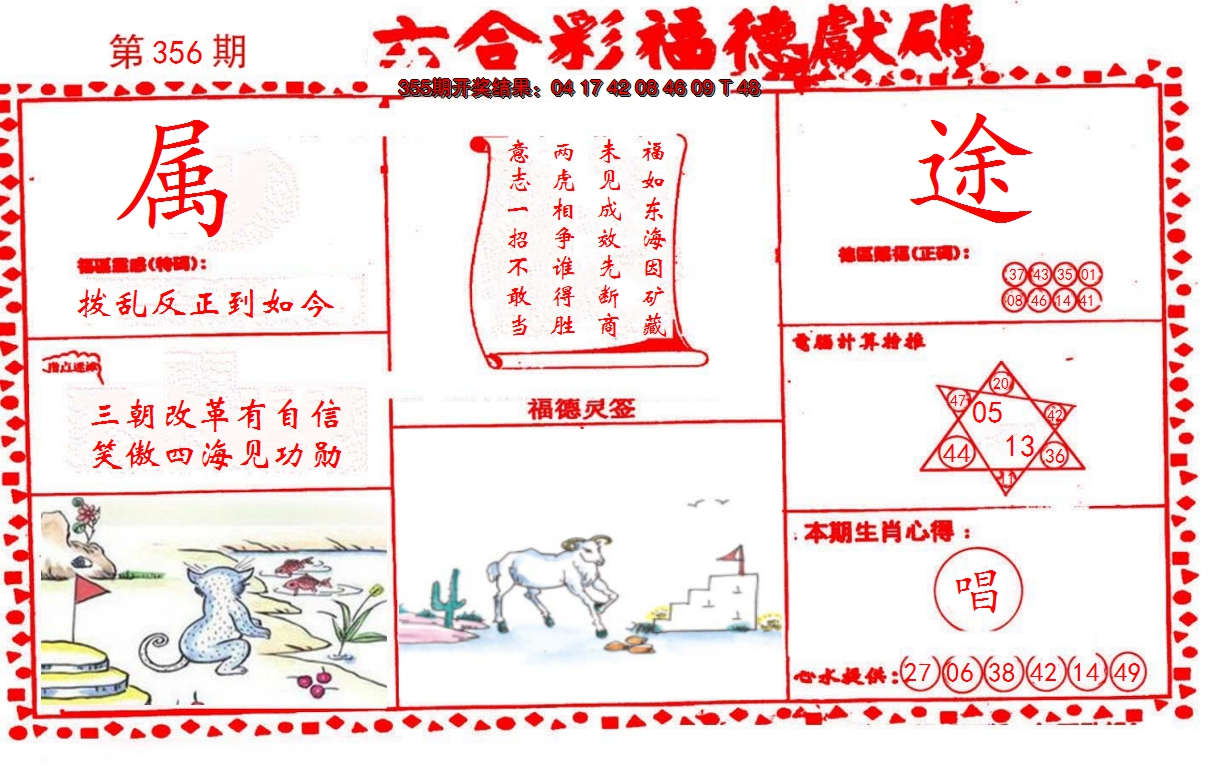 第356期
六合彩福德獻碼
355期开奖结果：04 17 42 08 46 09 T 48
属
福區靈感(特碼)：
拨乱反正到如今
指点迷津
三朝改革有自信
笑傲四海见功勋
福如东海因矿藏
未见成效先断商
两虎相争谁得胜
意志一招不敢当
福德灵签
途
德區賜福(正碼)：
37 43 35 01
08 46 14 41
電腦計算推
20
47 05 42
44 13 36
11
本期生肖心得：
唱
心水提供：27 06 38 42 14 49